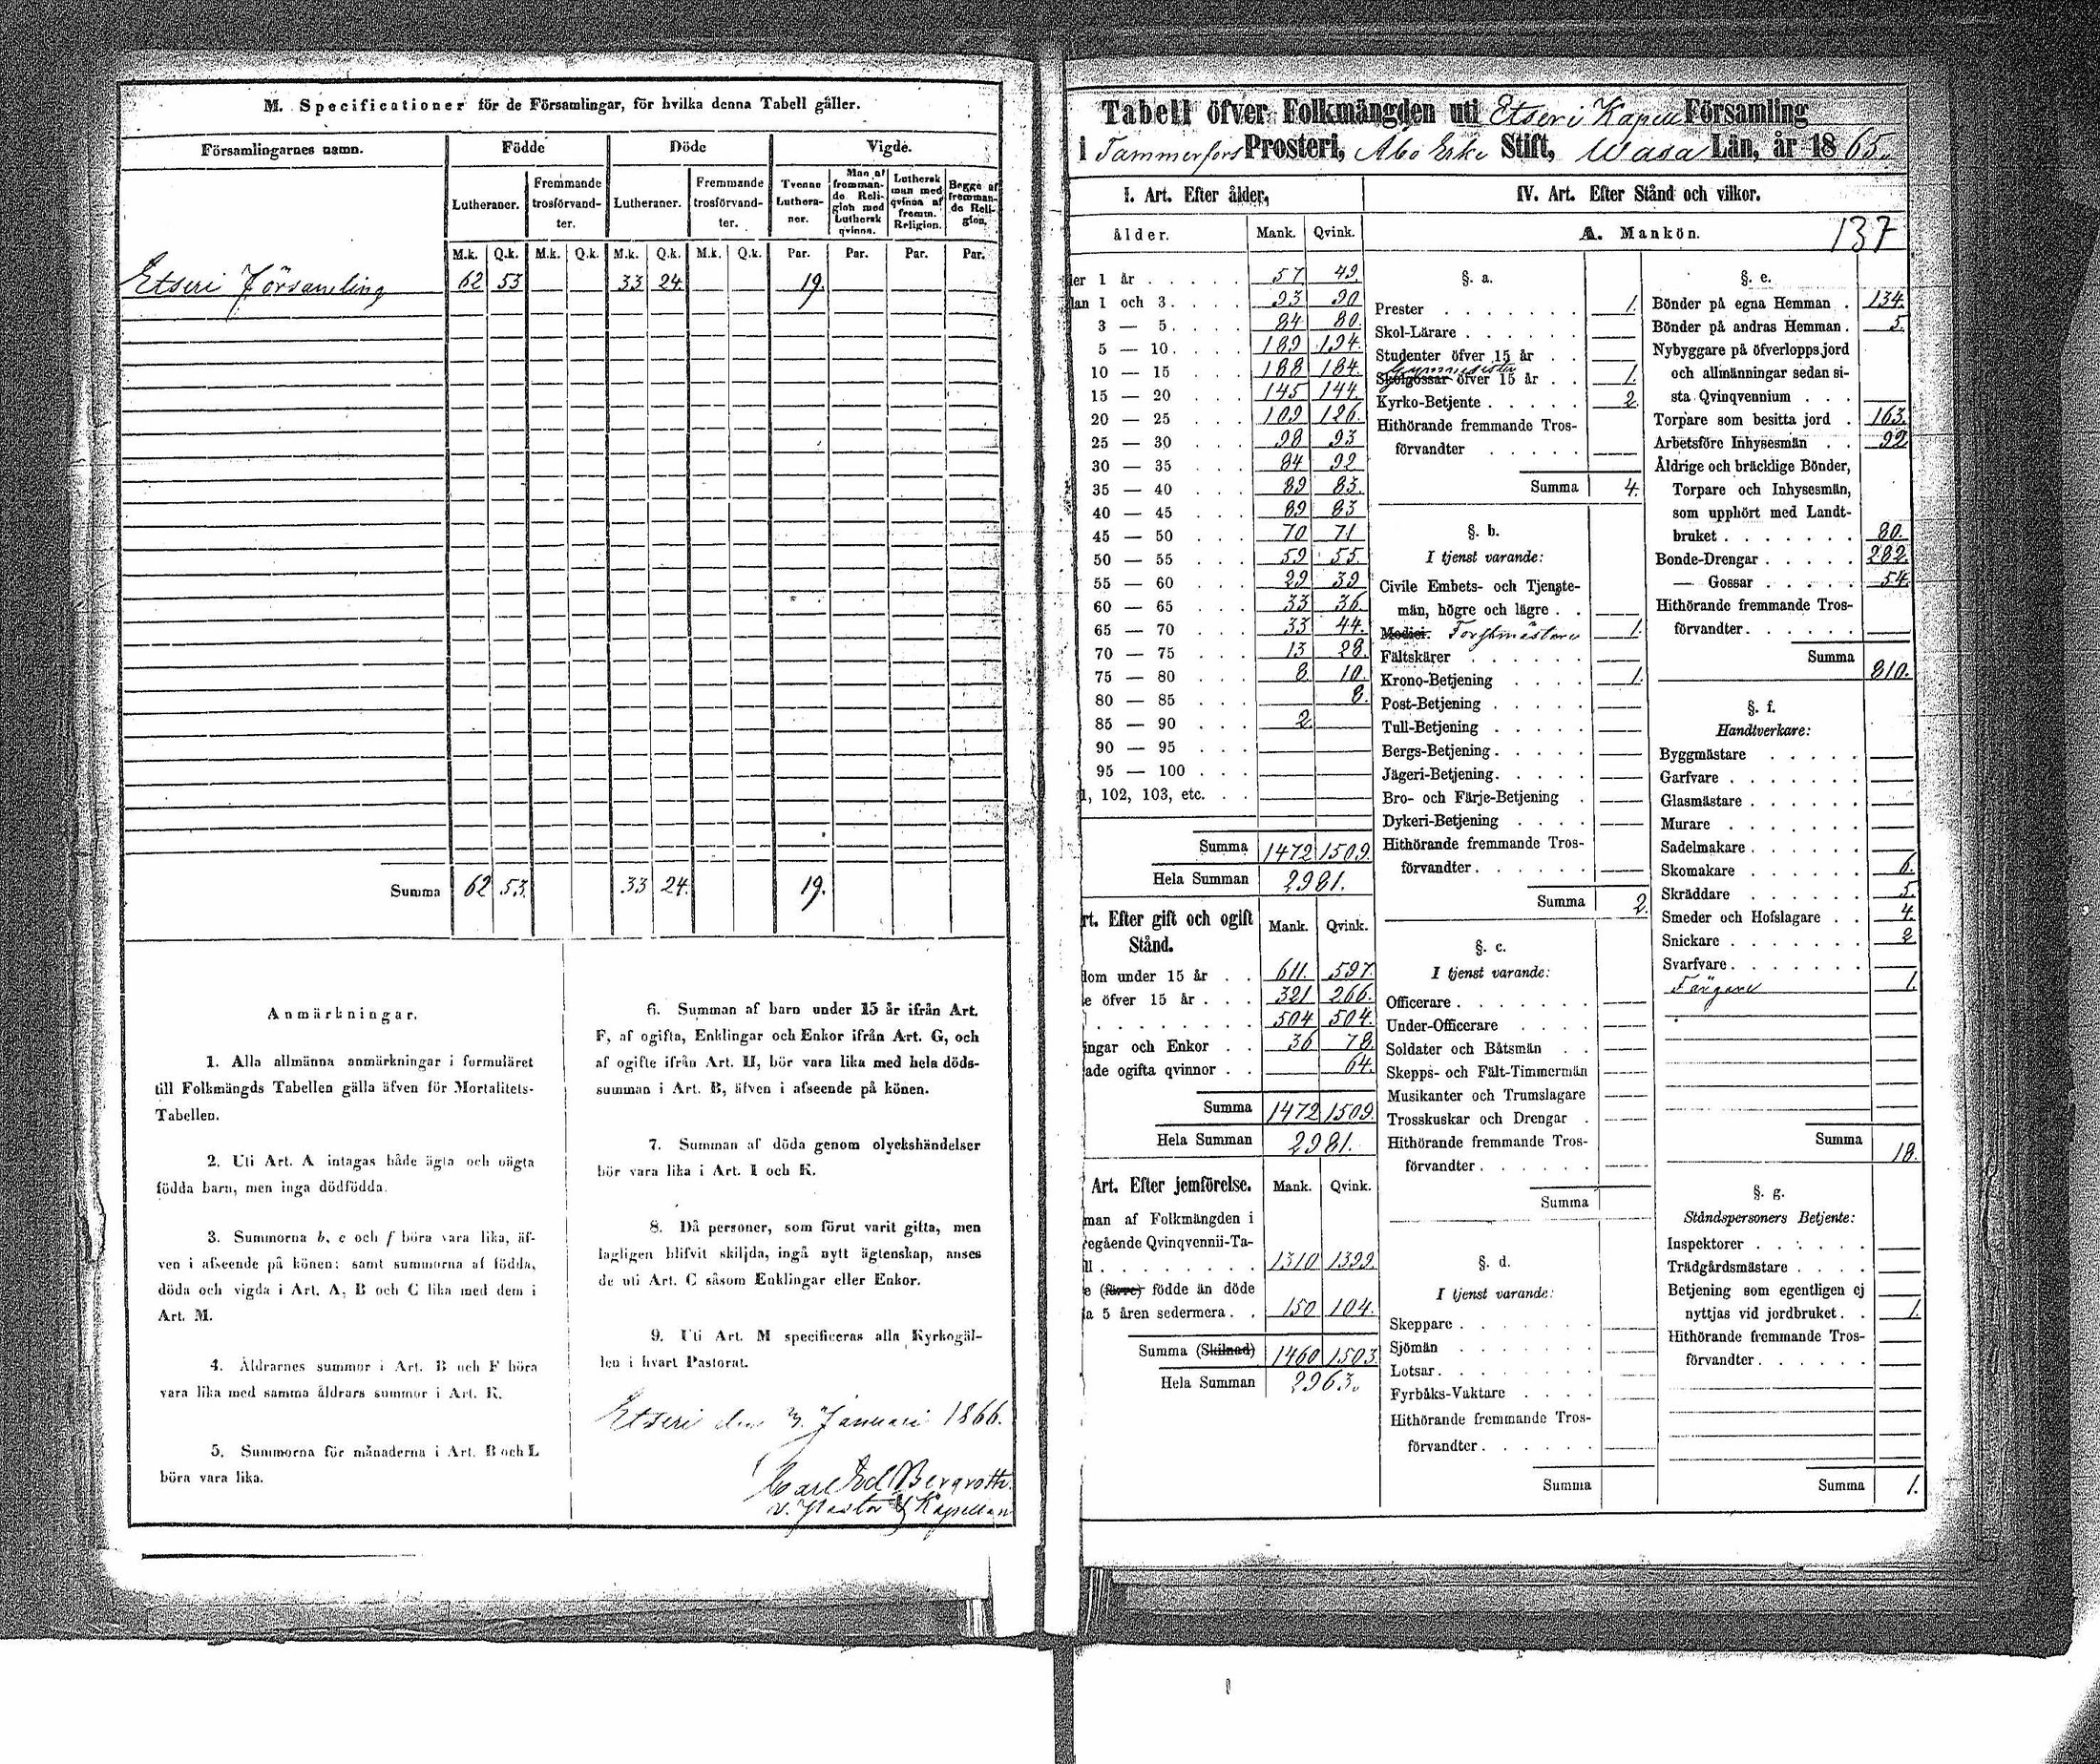 M. Specificationer för de Församlingar, för hvilka denna Tabell gäller.
Församlingarnes namn. Födde Döde Vigde.
Lutheraner. Fremmande trosförvandter. Lutheraner. Fremmande trosförvandter. Tvenne Lutheraner. Man af fremmande Religion med Luthersk qvinna. Luthersk man med qvinna af fremm. Religion. Begge af fremmande Religion.
M.k. Q.k. M.k. Q.k. M.k. Q.k. M.k. Q.k. Par. Par. Par. Par.
Etseri Församling 62 53 33 24 19.
Summa 62 53. 33 24. 19.
Anmärkningar.
1. Alla allmänna anmärkningar i formuläret
till Folkmängds Tabellen gälla äfven för Mortalitets-
Tabellen.
2. Uti Art. A intagas både ägta och oägta
födda barn, men inga dödfödda.
3. Summorna b, c och f böra vara lika, äf-
ven i afseende på könen; samt summorna af födda,
döda och vigda i Art. A, B och C lika med dem i
Art. M.
4. Åldrarnes summor i Art. B och F böra
vara lika med samma åldrars summor i Art. K.
5. Summorna för månaderna i Art. B och L
böra vara lika.
6. Summan af barn under 15 år ifrån Art.
F, af ogifta, Enklingar och Enkor ifrån Art. G, och
af ogifte ifrån Art. H, bör vara lika med hela döds-
summan i Art. B, äfven i afseende på könen.
7. Summan af döda genom olyckshändelser
bör vara lika i Art. I och K.
8. Då personer, som förut varit gifta, men
lagligen blifvit skiljda, ingå nytt ägtenskap, anses
de uti Art. C såsom Enklingar eller Enkor.
9. Uti Art. M specificeras alla Kyrkogäl-
len i hvart Pastorat.
Etseri den 3. Januari 1866.
Carl Ed Bergroth.
v. Pastor & Kapellan
Tabell öfver Folkmängden uti Etseri Kapell Församling
i Tammerfors Prosteri, Åbo Erke Stift, Wasa Län, år 1865.
I. Art. Efter ålder,
ålder. Mank. Qvink.
er 1 år 57 49.
lan 1 och 3 93 90
3 — 5 84 80.
5 — 10 189 194.
10 — 15 188 184.
15 — 20 145 144.
20 — 25 109 126.
25 — 30 98 93
30 — 35 84 92
35 — 40 89 83.
40 — 45 89 83
45 — 50 70 71
50 — 55 59 55.
55 — 60 29 39
60 — 65 33 36.
65 — 70 33 44.
70 — 75 13 28.
75 — 80 8 10.
80 — 85 8.
85 — 90 2
90 — 95
95 — 100
1, 102, 103, etc.
Summa 1472 1509.
Hela Summan 2981.
rt. Efter gift och ogift
Stånd. Mank. Qvink.
dom under 15 år 611. 597.
e öfver 15 år 321 266.
504 504.
ingar och Enkor 36 78.
ade ogifta qvinnor 64.
Summa 1472 1509.
Hela Summan 2981.
Art. Efter jemförelse. Mank. Qvink.
man af Folkmängden i
regående Qvinqvennii-Ta-
ll 1310 1399.
e (färre) födde än döde
a 5 åren sedermera 150 104.
Summa (Skilnad) 1460 1503.
Hela Summan 2963.
IV. Art. Efter Stånd och vilkor.
A. Mankön. 137
§. a.
Prester 1.
Skol-Lärare
Studenter öfver 15 år
Gymnasister
Skolgossar öfver 15 år 1.
Kyrko-Betjente 2.
Hithörande fremmande Tros-
förvandter
Summa 4.
§. b.
I tjenst varande:
Civile Embets- och Tjenste-
män, högre och lägre
Medici. Forstmästare 1.
Fältskärer
Krono-Betjening 1.
Post-Betjening
Tull-Betjening
Bergs-Betjening
Jägeri-Betjening
Bro- och Färje-Betjening
Dykeri-Betjening
Hithörande fremmande Tros-
förvandter
Summa 2.
§. c.
I tjenst varande:
Officerare
Under-Officerare
Soldater och Båtsmän
Skepps- och Fält-Timmermän
Musikanter och Trumslagare
Trosskuskar och Drengar
Hithörande fremmande Tros-
förvandter
Summa
§. d.
I tjenst varande:
Skeppare
Sjömän
Lotsar
Fyrbåks-Vaktare
Hithörande fremmande Tros-
förvandter
Summa
§. e.
Bönder på egna Hemman 134.
Bönder på andras Hemman 5.
Nybyggare på öfverloppsjord
och allmänningar sedan si-
sta Qvinqvennium
Torpare som besitta jord 163.
Arbetsföre Inhysesmän 92
Åldrige och bräcklige Bönder,
Torpare och Inhysesmän,
som upphört med Landt-
bruket 80.
Bonde-Drengar 282.
— Gossar 54.
Hithörande fremmande Tros-
förvandter
Summa 810.
§. f.
Handtverkare:
Byggmästare
Garfvare
Glasmästare
Murare
Sadelmakare
Skomakare 6.
Skräddare 5.
Smeder och Hofslagare 4.
Snickare 2
Svarfvare
Färgare 1.
Summa 18.
§. g.
Ståndspersoners Betjente:
Inspektorer
Trädgårdsmästare
Betjening som egentligen ej
nyttjas vid jordbruket 1.
Hithörande fremmande Tros-
förvandter
Summa 1.